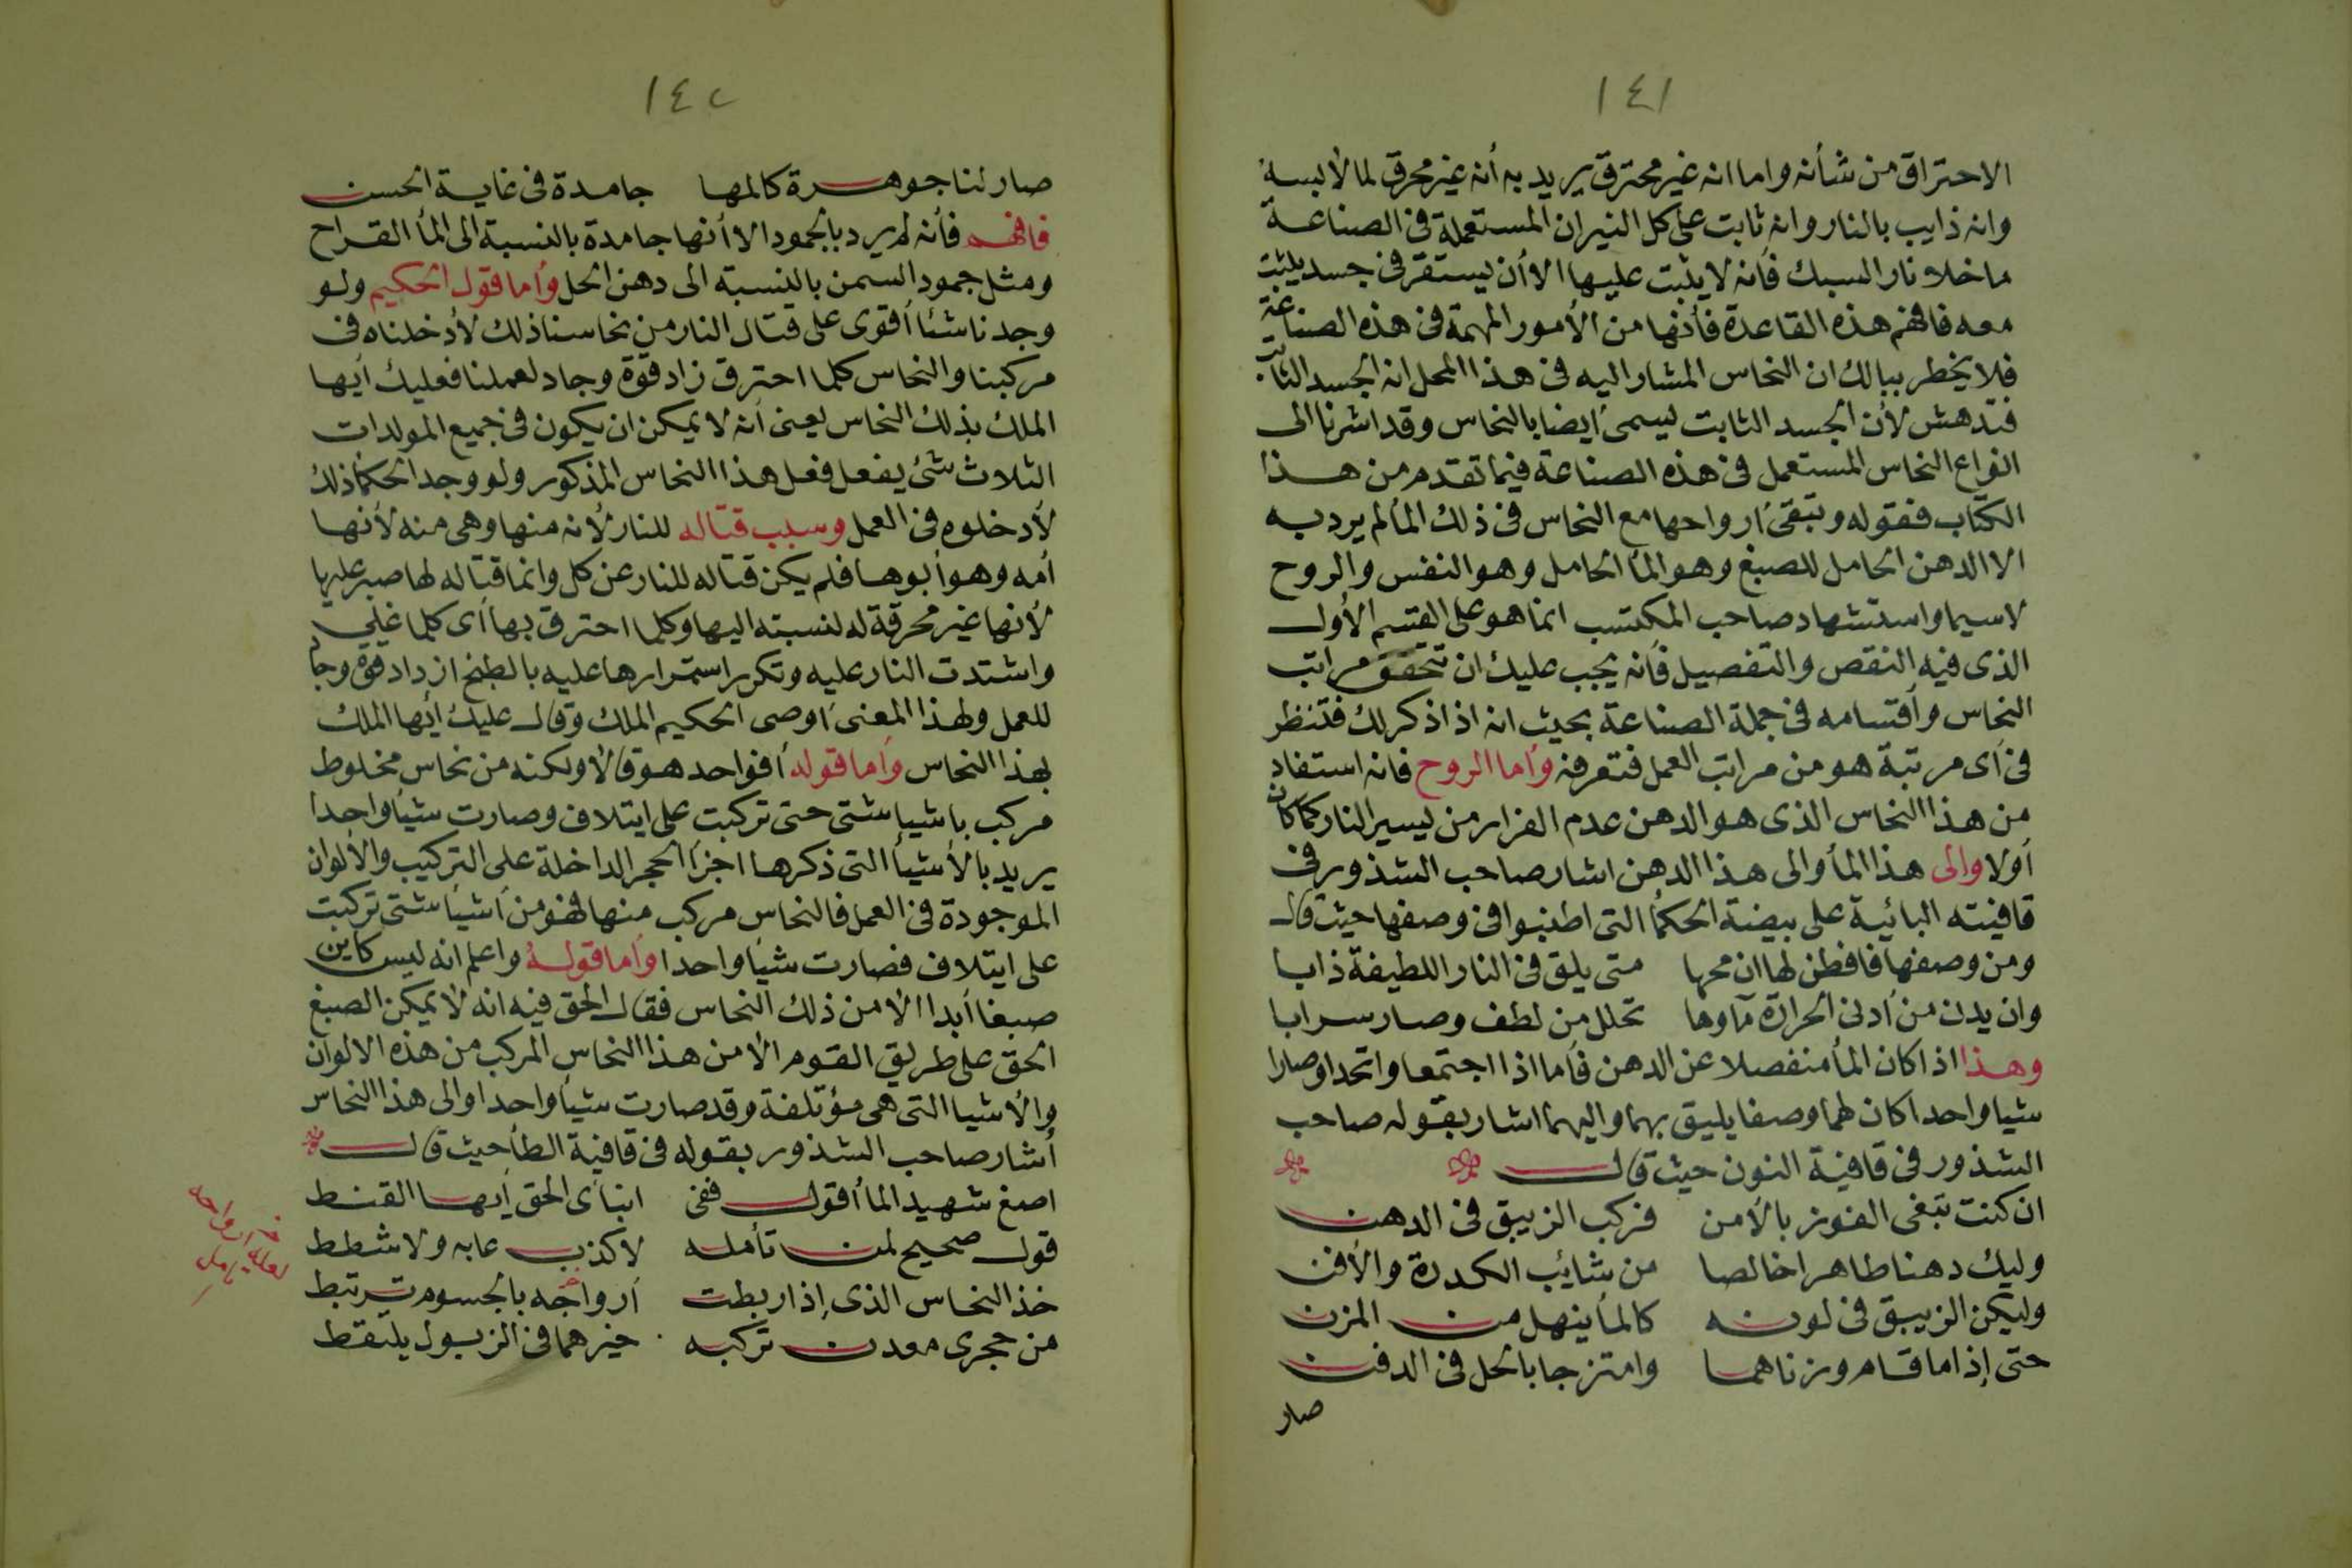 ١٤١
الاحتراق من شأنه واما انه غير محترق يريد به أنه غير محرق لما لابسه
وانه ذايب بالنار وانه ثابت على كل النيران المستعملة فى الصناعة
ما خلا نار السبك فأنه لا يثبت عليها الا أن يستقر فى جسد يثبت
معه فافهم هذه القاعدة فأنها من الأمور المهمة فى هذه الصناعة
فلا يخطر ببالك ان النحاس المشار اليه فى هذا المحل انه الجسد الثابت
فتدهش لأن الجسد الثابت يسمى ايضا بالنحاس وقد اشرنا الى
انواع النحاس المستعمل فى هذه الصناعة فيما تقدم من هذا
الكتاب فقوله وتبقى ارواحها مع النحاس فى ذلك المأ لم يرد به
الا الدهن الحامل للصبغ وهو المأ الحامل وهو النفس والروح
لا سيما واستشهاد صاحب المكتسب انما هو على القسم الأول
الذى فيه النقص والتفصيل فأنه يجب عليك ان تتحقق مراتب
النحاس وأقسامه فى جملة الصناعة بحيث انه اذا ذكر لك فتنظر
فى أى مرتبة هو من مراتب العمل فتعرفه وأما الروح فانه استفاد
من هذا النحاس الذى هو الدهن عدم الفرار من يسير النار كما كان
أولا والى هذا المأ والى هذا الدهن اشار صاحب الشذور فى
قافيته البائية على بيضة الحكمأ التى اطنبوا فى وصفها حيث قال
ومن وصفها فافطن لها ان محها متى يلق فى النار اللطيفة ذابا
وان يدن من أدنى الحرارة مآوها تحلل من لطف وصار سرابا
وهذا اذا كان المأ منفصلا عن الدهن فأما اذا اجتمعا واتحدا وصارا
شيا واحدا كان لهما وصفا يليق بهما واليهما اشار بقوله صاحب
الشذور فى قافية النون حيث قال
ان كنت تبغى الفوز بالأمن فركب الزيبق فى الدهن
وليك دهنا طاهرا خالصا من شائب الكدرة والأفن
وليكن الزيبق فى لونه كالمأ ينهل من المزن
حتى إذا ما قام وزناهما وامتزجا بالحل فى الدفن
صار
١٤٢
صار لنا جوهرة كالمها جامدة فى غاية الحسن
فافهم فأنه لم يرد بالجمود الا أنها جامدة بالنسبة الى المأ القراح
ومثل جمود السمن بالنسبة الى دهن الحل وأما قول الحكيم ولو
وجدنا شئا أقوى على قتال النار من نحاسنا ذلك لأدخلناه فى
مركبنا والنحاس كلما احترق زاد قوة وجاد لعملنا فعليك أيها
الملك بذلك النحاس يعنى أنه لا يمكن ان يكون فى جميع المولدات
الثلاث شئ يفعل فعل هذا النحاس المذكور ولو وجد الحكمأ ذلك
لأدخلوه فى العمل وسبب قتاله للنار لأنه منها وهى منه لأنها
أمه وهو أبوها فلم يكن قتاله للنار عن كل وانما قتاله لها صبر عليها
لأنها غير محرقة له لنسبته اليها وكلما احترق بها أى كلما غلي
واشتدت النار عليه وتكرر استمرارها عليه بالطبخ ازداد قوة وجاد
للعمل ولهذا المعنى اوصى الحكيم الملك وقال عليك أيها الملك
بهذا النحاس وأما قوله أفواحد هو قال لا ولكنه من نحاس مخلوط
مركب باشيا شتى حتى تركبت على ايتلاف وصارت شيأ واحدا
يريد بالأشيأ التى ذكرها اجزأ الحجر الداخلة على التركيب والألوان
الموجودة فى العمل فالنحاس مركب منها فهو من أشيأ شتى تركبت
على ايتلاف فصارت شيأ واحدا وأما قوله واعلم انه ليس كاين
صبغا أبدا الا من ذلك النحاس فقال الحق فيه انه لا يمكن الصبغ
الحق على طريق القوم الا من هذا النحاس المركب من هذه الالوان
والأشيا التى هى مؤتلفة وقد صارت شيأ واحدا والى هذا النحاس
أشار صاحب الشذور بقوله فى قافية الطأ حيث قال
اصغ شهيد الما أقول ففى ابنأى الحق أيها القنط
قول صحيح لمن تأمله لا كذب عابه ولا شطط
خذ النحاس الذى إذا ربطت أرواحه بالجسوم ترتبط
من حجرى معدن تركبه خيرهما فى الزبول يلتقط
لعله ارواحه